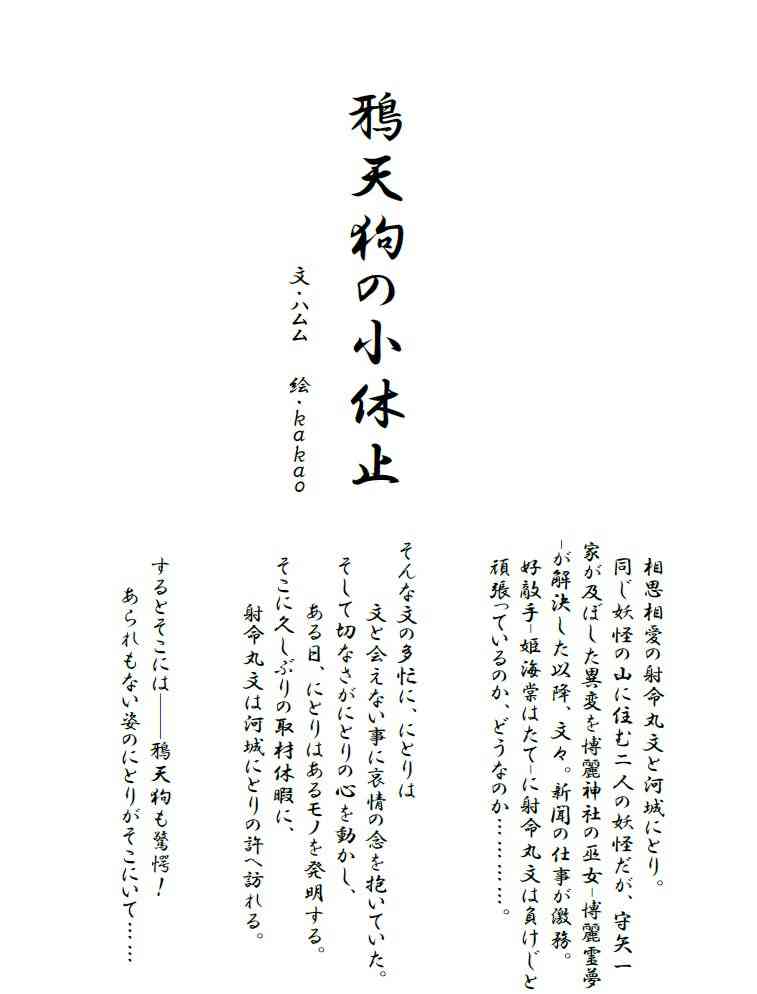 鴉天狗の小休止
文・ハムム　絵・kakao
相思相愛の射命丸文と河城にとり。
同じ妖怪の山に住む二人の妖怪だが、守矢一
家が及ぼした異変を博麗神社の巫女―博麗霊夢
―が解決した以降、文々。新聞の仕事が激務。
好敵手―姫海棠はたて―に射命丸文は負けじと
頑張っているのか、どうなのか…………。
そんな文の多忙に、にとりは
文と会えない事に哀情の念を抱いていた。
そして切なさがにとりの心を動かし、
ある日、にとりはあるモノを発明する。
そこに久しぶりの取材休暇に、
射命丸文は河城にとりの許へ訪れる。
するとそこには――鴉天狗も驚愕！
あられもない姿のにとりがそこにいて……